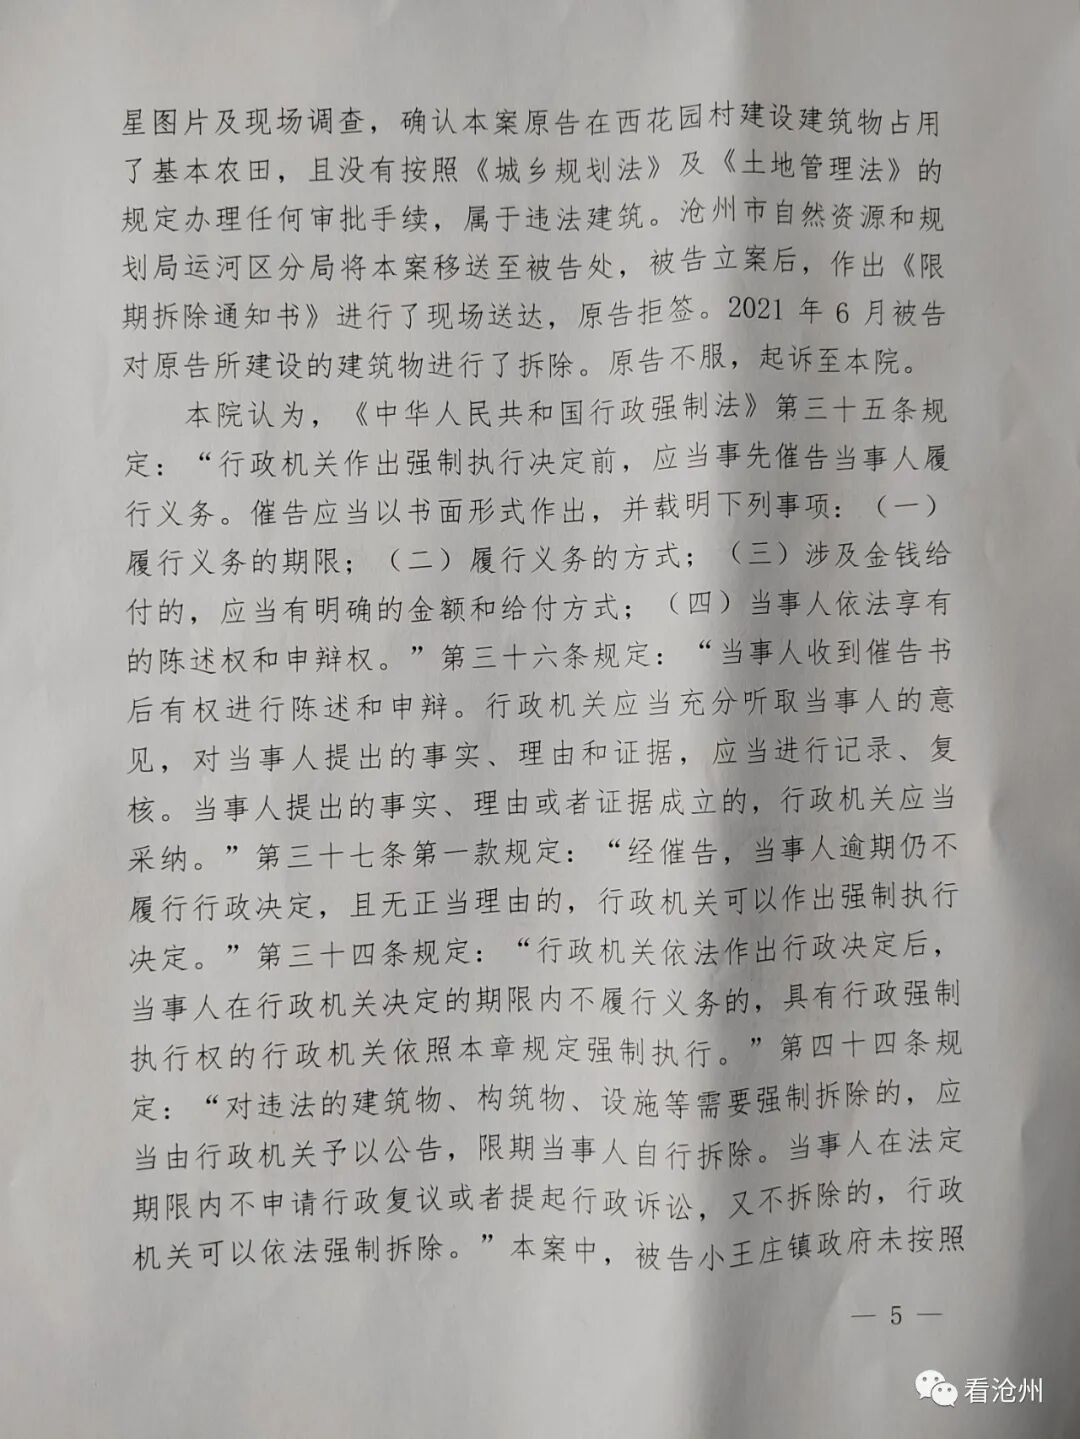 星图片及现场调查，确认本案原告在西花园村建设建筑物占用
了基本农田，且没有按照《城乡规划法》及《土地管理法》的
规定办理任何审批手续，属于违法建筑。沧州市自然资源和规
划局运河区分局将本案移送至被告处，被告立案后，作出《限
期拆除通知书》进行了现场送达，原告拒签。2021年6月被告
对原告所建设的建筑物进行了拆除。原告不服，起诉至本院。
本院认为，《中华人民共和国行政强制法》第三十五条规
定：“行政机关作出强制执行决定前，应当事先催告当事人履
行义务。催告应当以书面形式作出，并载明下列事项：（一）
履行义务的期限；（二）履行义务的方式；（三）涉及金钱给
付的，应当有明确的金额和给付方式；（四）当事人依法享有
的陈述权和申辩权。”第三十六条规定：“当事人收到催告书
后有权进行陈述和申辩。行政机关应当充分听取当事人的意
见，对当事人提出的事实、理由和证据，应当进行记录、复
核。当事人提出的事实、理由或者证据成立的，行政机关应当
采纳。”第三十七条第一款规定：“经催告，当事人逾期仍不
履行行政决定，且无正当理由的，行政机关可以作出强制执行
决定。”第三十四条规定：“行政机关依法作出行政决定后，
当事人在行政机关决定的期限内不履行义务的，具有行政强制
执行权的行政机关依照本章规定强制执行。”第四十四条规
定：“对违法的建筑物、构筑物、设施等需要强制拆除的，应
当由行政机关予以公告，限期当事人自行拆除。当事人在法定
期限内不申请行政复议或者提起行政诉讼，又不拆除的，行政
机关可以依法强制拆除。”本案中，被告小王庄镇政府未按照
— 5 —
看沧州